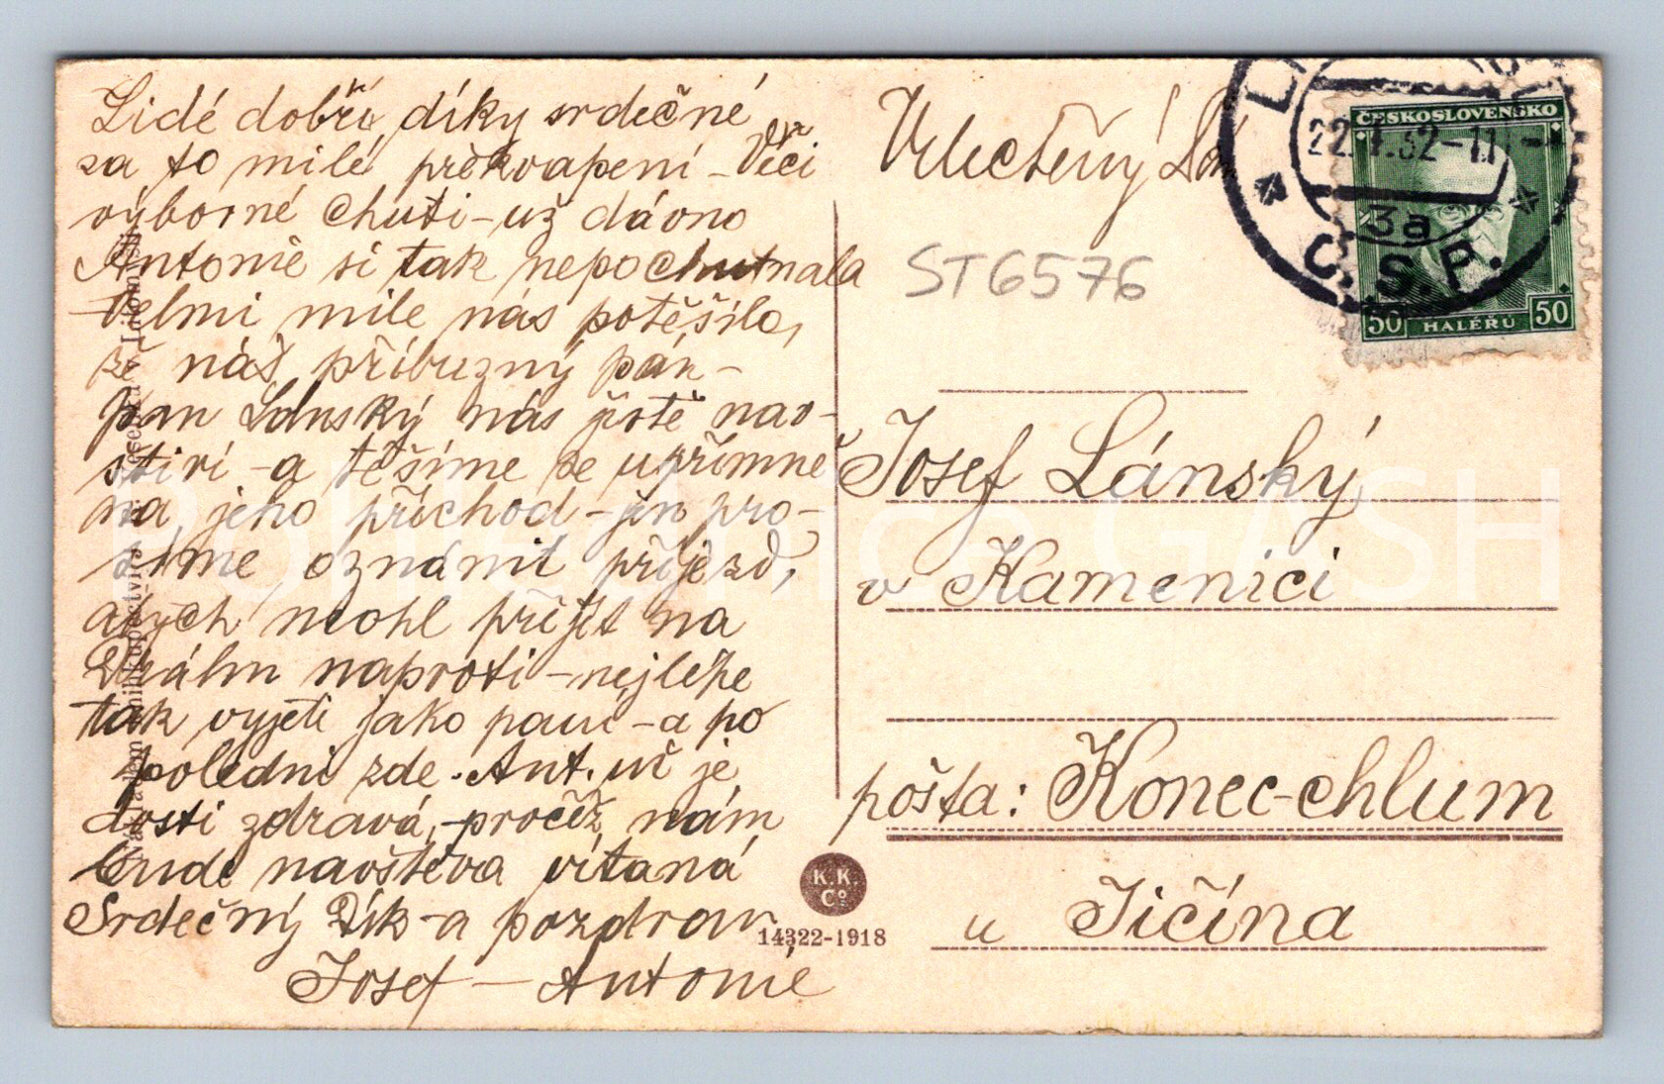 Lidé dobří, díky srdečné
za to milé překvapení - Věci
výborné chuti - už dávno
Antonie si tak nepochutnala
Velmi mile nás potěšilo,
že náš příbuzný pán -
pan Lánský nás ještě nav-
štíví - a těšíme se upřímně
na jeho příchod - jen pro-
síme oznámit příjezd,
abych mohl přijet na
naproti - nejlépe
tak vyjeti jako paní - a po
poledni zde. Ant. už je
dosti zdravá, - pročež nám
bude navštěva vítaná
Srdečný Dík - a pozdrav
Josef - Antonie
ST6576
ČESKOSLOVENSKO
50 HALÉŘŮ 50
3a
Č.S.P.
Josef Lánský,
v Kamenici
pošta: Konec-chlum
u Jičína
K.K.
Co
14322-1918
Pohlednice GASH